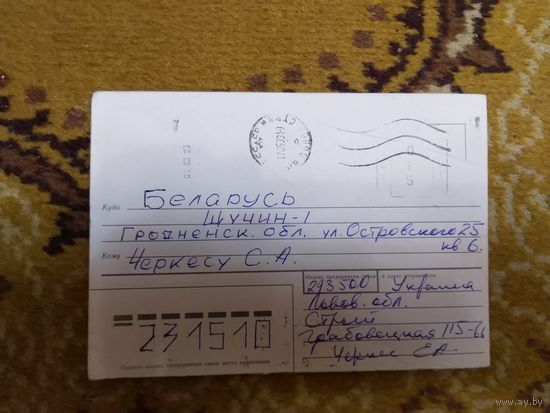 Куда
Беларусь
Щучин-1
Гродненск. обл. ул. Островского 25
кв 6.
Кому Черкесу С. А.
Индекс предприятия связи и адрес отправителя
293500 Украина
Львов. обл.
Стрый
Грабовецкая 115-66
Черкес
231510
Пишите индекс предприятия связи места назначения
www.ay.by